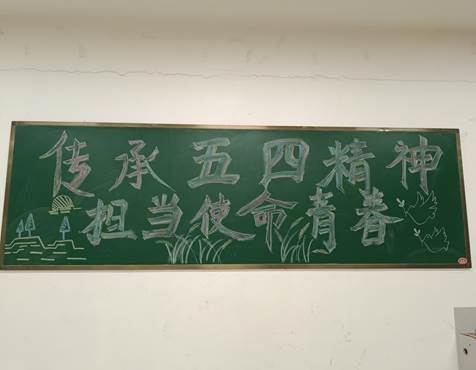 传承五四精神
担当使命青春